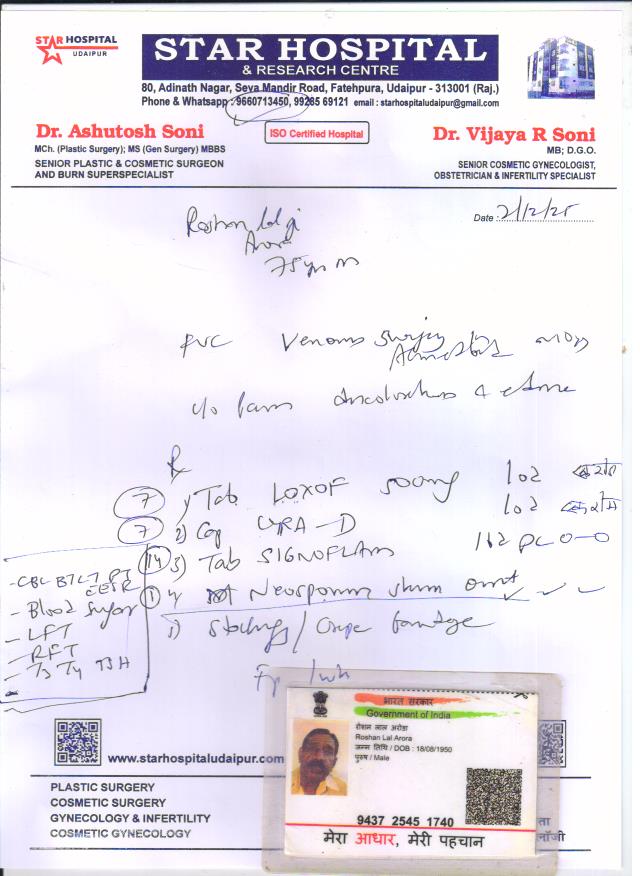 STAR HOSPITAL
UDAIPUR
STAR HOSPITAL
& RESEARCH CENTRE
80, Adinath Nagar, Seva Mandir Road, Fatehpura, Udaipur - 313001 (Raj.)
Phone & Whatsapp : 9660713450, 99285 69121 email : starhospitaludaipur@gmail.com
Dr. Ashutosh Soni
MCh. (Plastic Surgery); MS (Gen Surgery) MBBS
SENIOR PLASTIC & COSMETIC SURGEON
AND BURN SUPERSPECIALIST
ISO Certified Hospital
Dr. Vijaya R Soni
MB; D.G.O.
SENIOR COSMETIC GYNECOLOGIST,
OBSTETRICIAN & INFERTILITY SPECIALIST
Date : 2/12/25
Roshan lal ji
Arora
75 yrs m
Venous Surgery
c/o Pain
Rx
7 1) Tab LOXOF 500mg
7 2) Cap D
14 3) Tab SIGNOFLAM
1 4) Neosporin
5) / Crepe bandage
- CBC BT CT PT
ESR
- Blood Sugar
- LFT
- RFT
- T3 T4 TSH
www.starhospitaludaipur.com
PLASTIC SURGERY
COSMETIC SURGERY
GYNECOLOGY & INFERTILITY
COSMETIC GYNECOLOGY
भारत सरकार
Government of India
रोशन लाल अरोडा
Roshan Lal Arora
जन्म तिथि / DOB : 18/08/1950
पुरुष / Male
9437 2545 1740
मेरा आधार, मेरी पहचान